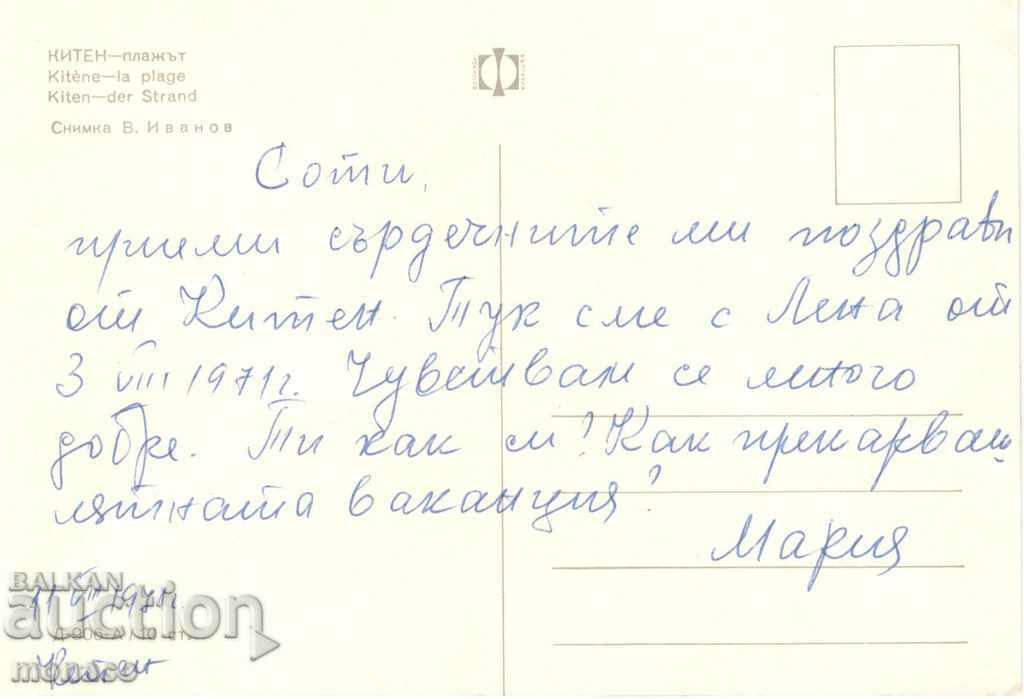 КИТЕН—плажът
Kitène—la plage
Kiten—der Strand
Снимка В. Иванов
Соти,
приеми сърдечните ми поздрави
от Китен. Тук сме с Лена от
3 VIII 1971г. Чувствам се много
добре. Ти как си? Как прекарваш
лятната ваканция?
Мария
BALKAN
auction
11 VIII 1971г
Д-906-А / 10 ст.
monaco
Китен